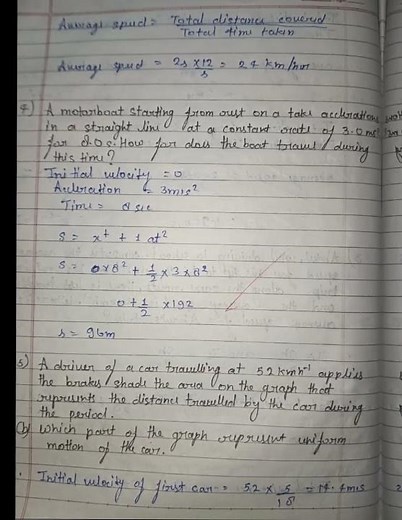 Average speed = Total distance covered
Total time taken
Average speed = 2s × 12 / s = 24 km/hor
4) A motorboat starting from oust on a take acclerations
in a straight line at a constant orate of 3.0 ms
for 8.0 s. How far does the boat travel during
this time?
Initial velocity = 0
Acleration = 3m/s²
Time = 8 sec
s = x^t + 1 at²
s = 0×8² + 1/2 × 3 × 8²
0 + 1/2 × 192
s = 96m
5) A driver of a car travelling at 52 kmh⁻¹ applies
the brakes shade the area on the graph that
represents the distance travelled by the car during
the period.
(b) Which part of the graph represent uniform
motion of the car.
Initial velocity of first car = 52 × 5/18 = 14.4m/s